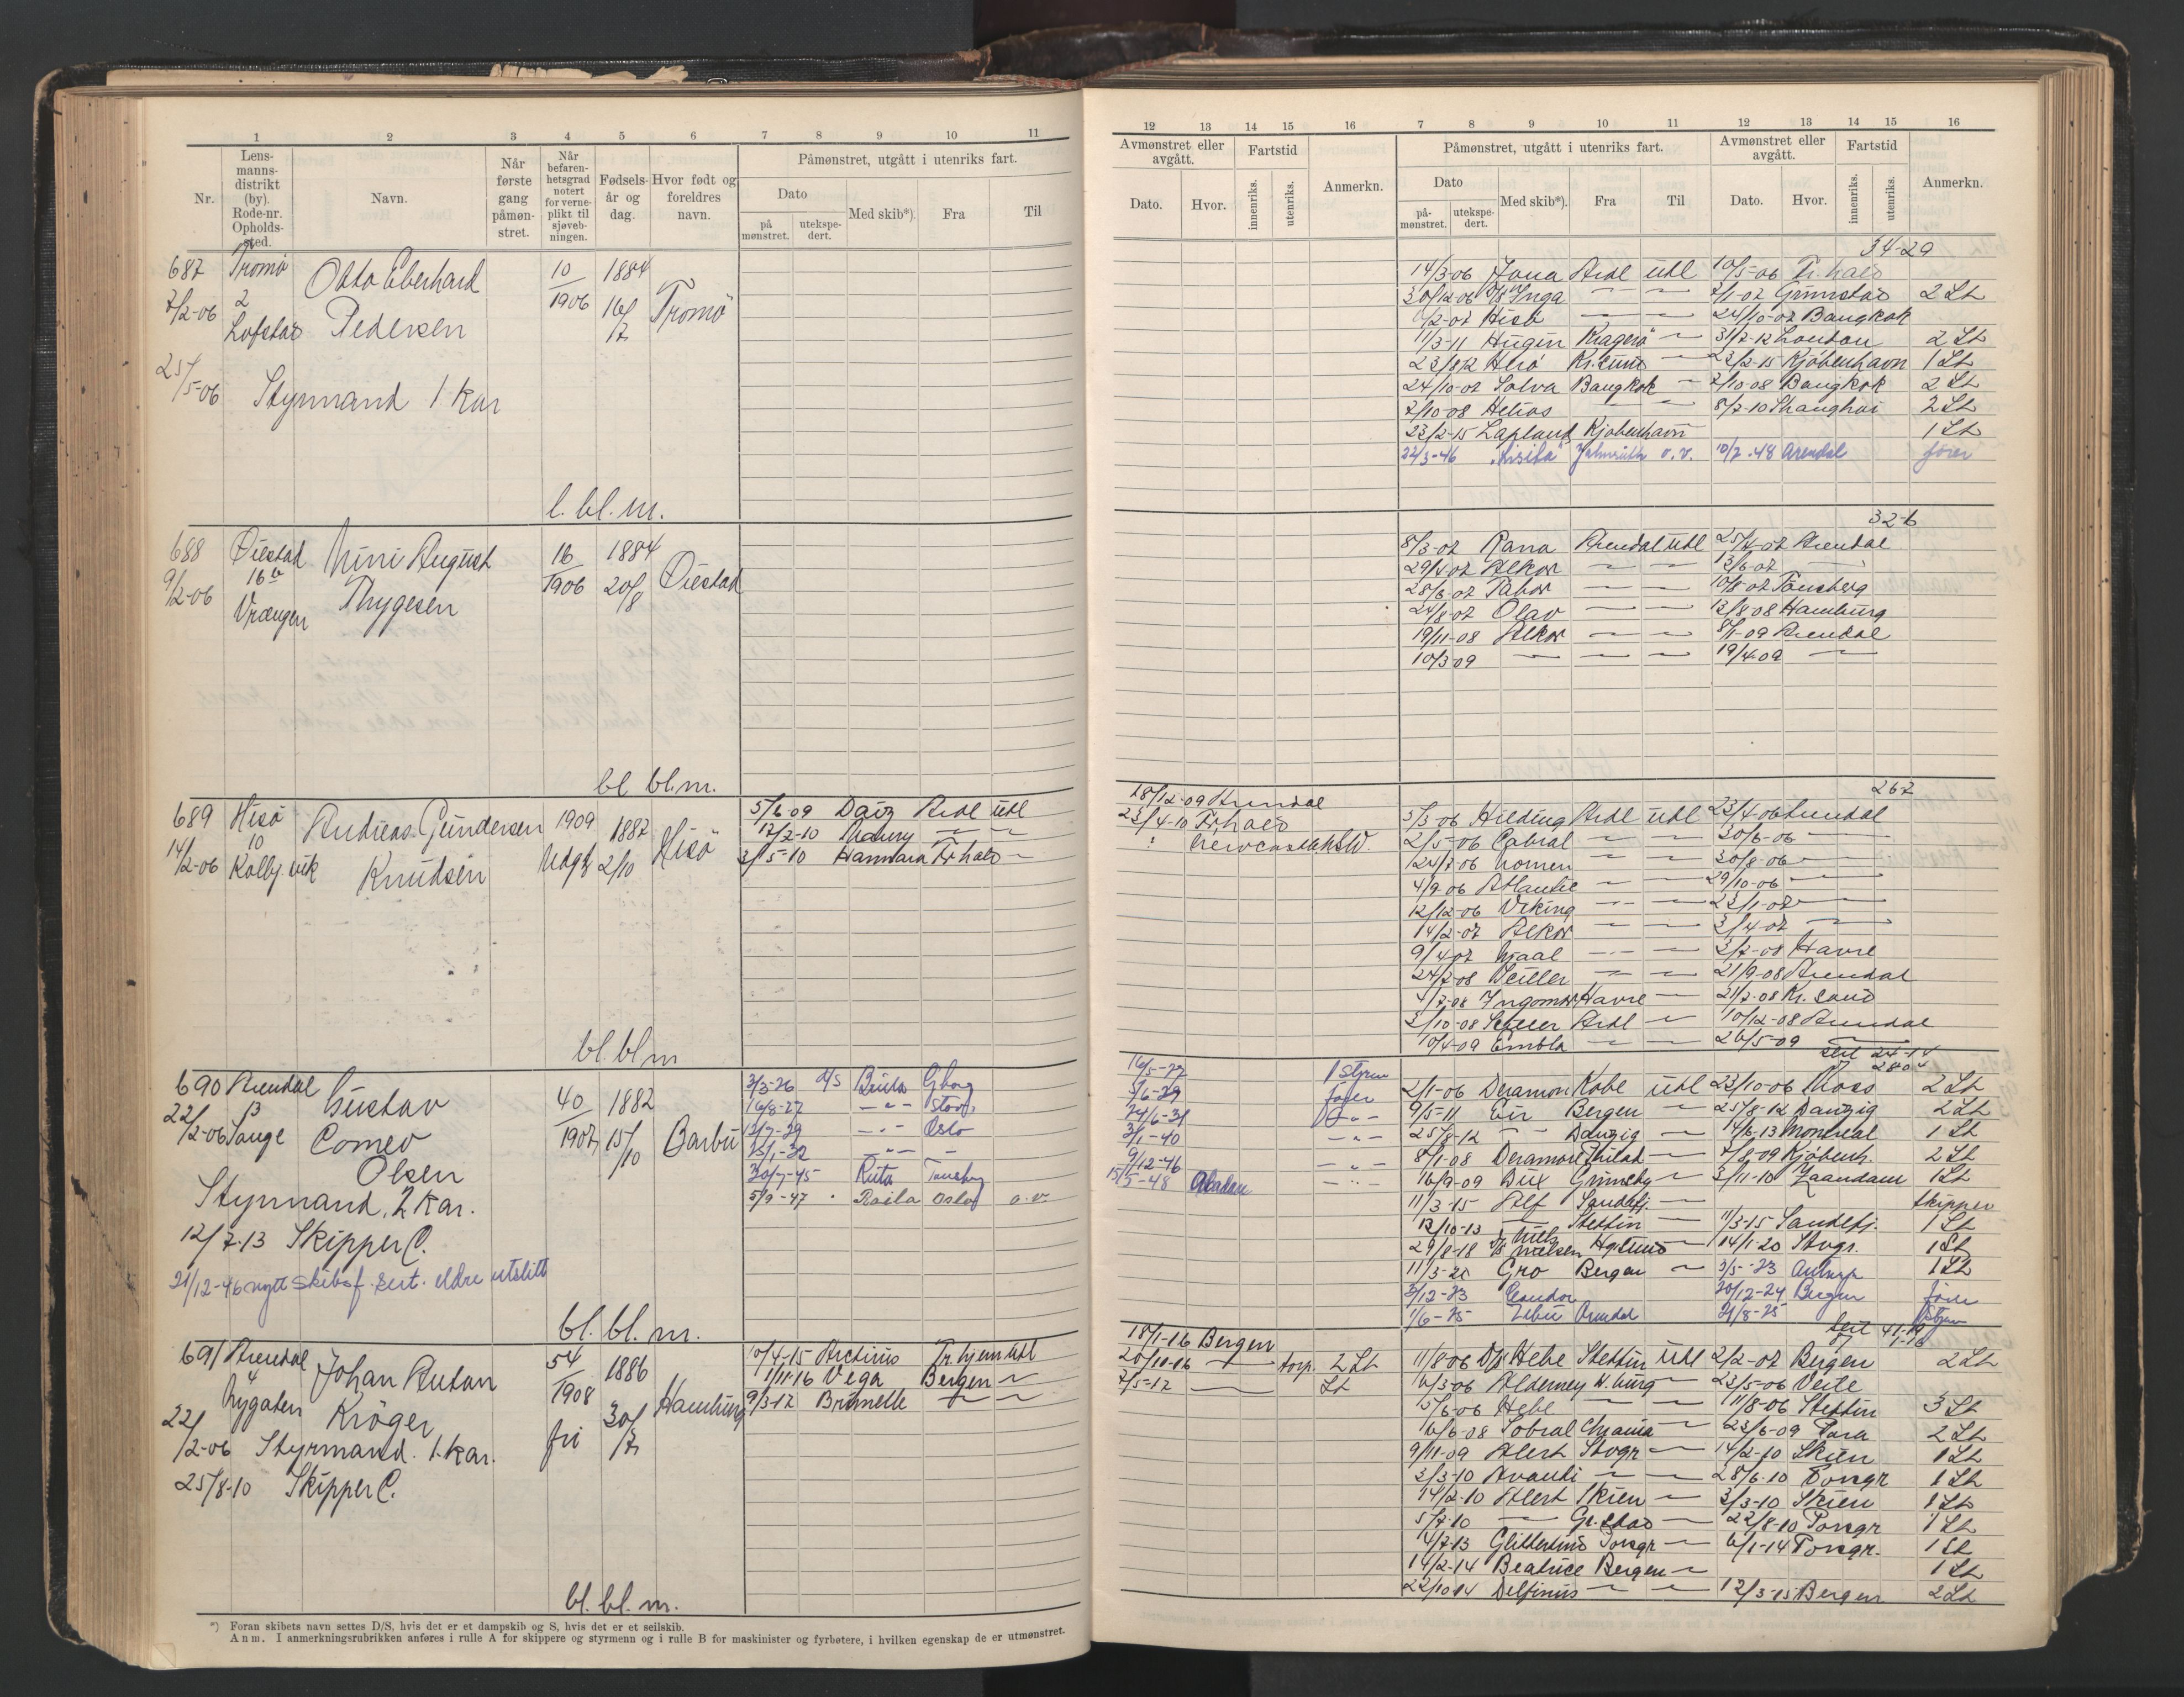 1 2 3 4 5 6 7 8 9 10 11
Nr.
Lens-
manns-
distrikt
(by).
Rode-nr.
Opholds-
sted.
Navn.
Når
første
gang
påmøn-
stret.
Når
befaren-
hetsgrad
notert
for verne-
plikt til
sjøveb-
ningen.
Fødsels-
år og
dag.
Hvor født og
foreldres
navn.
Påmønstret, utgått i utenriks fart.
Dato
på
mønstret.
utekspe-
dert.
Med skib*).
Fra
Til
687 Tromø Otto Eberhard 10 1884
7/2-06 2 1906 16/7 Tromø
Lofstad Pedersen
25/5-06 Styrmand 1. Kar
l. bl. m.
688 Øiestad Nini August 16 1884
9/2-06 16b 1906 20/8 Øiestad
Vrængen Thygesen
bl bl.m.
689 Hisö Andreas Gundersen 1909 1887 Hisö
10
14/2-06 Kolbj.vik Knudsen Udgh 2/10
5/6-09 Daiz Ardl utl
17/2-10 Ardl
3/5-10 Hannara Fr.hald
bl. bl m
690 Arendal Gustav 40 1882
22/2-06 Sange Comeo 1907 15/10 Barbu
Olsen
Styrmand, 2 Kar.
12/7-13 Skipper C.
21/12-46 nytt skibsf. sert. eldre utslitt
3/3-26 d/s Gborg
16/8-27 Stod
Oslo
30/7-45 Ruta Tønsberg
5/9-47 Raila Oslo o.v.
bl. bl. m.
691 Arendal Johan Anton 54 1886
4 1908
Nygaten Kröger Hamburg
22/2-06 Styrmand. 1. kar. fri 30/7
25/8-10 Skipper C.
10/4-15 Arcturus Tr.hjem utl
1/11-16 Vega Bergen
9/3-17 Brunelle
bl. bl. m.
*) Foran skibets navn settes D/S, hvis det er et dampskib og S, hvis det er et seilskib.
Anm. I anmerkningsrubrikken anføres i rulle A for skippere og styrmenn og i rulle B for maskinister og fyrbøtere, i hvilken egenskap de er utmønstret.
12 13 14 15 16 7 8 9 10 11 12 13 14 15 16
Avmønstret eller
avgått.
Fartstid
Anmerkn.
Dato. Hvor. innenriks. utenriks.
Påmønstret, utgått i utenriks fart.
Dato
på-
mønstret.
utekspe-
dert.
Med skib*). Fra Til
Avmønstret eller
avgått.
Dato. Hvor.
Fartstid
innenriks. utenriks.
Anmerkn.
34-29
14/3-06 Jona Ardl utl 10/5-06 Fr.hald
30/12-06 D/S Inga 3/1-07 Grimstad 2 St
Hisö 24/10-07 Bangkok
11/3-11 Hugin Kragerö 31/7-12 London 2 St
23/8-12 Herö Kr.sund 23/2-15 Kjöbenhavn 1 St
24/10-07 Solva Bangkok 7/10-08 Bangkok 2 St
7/10-08 Helios 8/7-10 Shanghai 2 St
23/2-15 Lapland Kjöbenhavn 1 St
22/3-46 o.v. 10/7-48 Arendal fører
32-6
8/3-07 Rana Arendal utl 25/4-07 Arendal
29/4-07 Alkor 13/6-07
28/6-07 Tabor 10/8-07 Tönsberg
24/8-07 Olav 13/8-08 Hamburg
19/11-08 Alkor 8/1-09 Arendal
10/3-09 19/4-09
267
18/12-09 Arendal
23/4-10 Fr.hald
Newcastle NSW.
3/3-06 Hilding Ardl utl 23/4-06 Arendal
2/5-06 Cabral 30/6-06
24/7-06 Nomen 30/8-06
4/9-06 Atlantic 29/10-06
12/12-06 Viking 23/1-07
14/2-07 Alkor 3/4-07
9/4-07 Njaal 3/7-08 Havre
24/7-08 21/9-08 Arendal
4/7-08 Ingomar Havre 21/7-08 Kr.sand
3/10-08 Ardl 10/12-08 Arendal
10/4-09 Embla 26/5-09
seil 24-14
16/5-27 1 styrm
5/6-29 fører
24/6-31
3/1-40
9/12-46
15/5-48 Arendal
2/1-06 Deramore Kobe utl 23/10-06 Moss 2 St
9/5-11 Eir Bergen 25/8-12 Danzig 2 St
25/8-12 Danzig 14/6-13 Montreal 1 St
8/1-08 Deramore Philad 7/8-09 Kjöbenh. 2 St
16/9-09 Dux Grimsby 3/11-10 Zaandam 1 St
11/3-15 Alf Sandefj. Skipper
13/10-13 Stettin 11/3-15 Sandefj. 1 St
29/8-18 D/S Niels Nielsen H.gesund 14/1-20 Stvgr. 1 St
11/3-20 Gro Bergen 3/5-23 Antwerp 1 St
3/12-23 20/12-24 Bergen fører
1/6-25 Arendal 21/8-25 Styrm
Seil 41-19
18/1-16 Bergen
20/11-16 torp. 2 St
7/5-17 St
11/8-06 D/S Hebe Stettin utl 2/2-07 Bergen 2 St
6/3-06 Alderney W.burg 23/5-06 Veile
15/6-06 Hebe 11/8-06 Stettin 3 St
16/6-08 Sobral Chrania 23/6-09 Para 2 St
9/11-09 Alert Stvgr 14/2-10 Skien 1 St
3/3-10 Avanti 28/6-10 Porsgr 1 St
14/2-10 Alert Skien 3/3-10 Skien 1 St
5/7-10 Gr.stad 22/8-10 Porsgr 1 St
4/7-13 Glittertind Porsgr 6/1-14 Porsgr. 1 St
14/2-14 Beatrice Bergen 1 St
22/10-14 Delfinus 12/3-15 Bergen 2 St